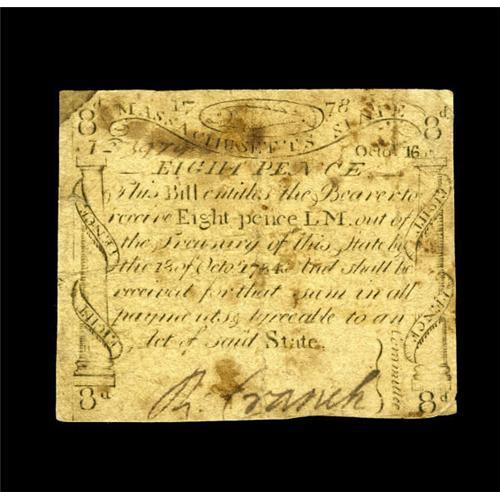 8d 17 78 8d
MASSACHUSETTS STATE
Octor. 16
EIGHT PENCE
This Bill entitles the Bearer to
receive Eight pence L.M. out of
the Treasury of this State by
the 1st of Octor. 1784 And shall be
received for that sum in all
payments agreeable to an
Act of said State.
EIGHT PENCE
EIGHT PENCE
Committee
R. Cranch
8d 8d